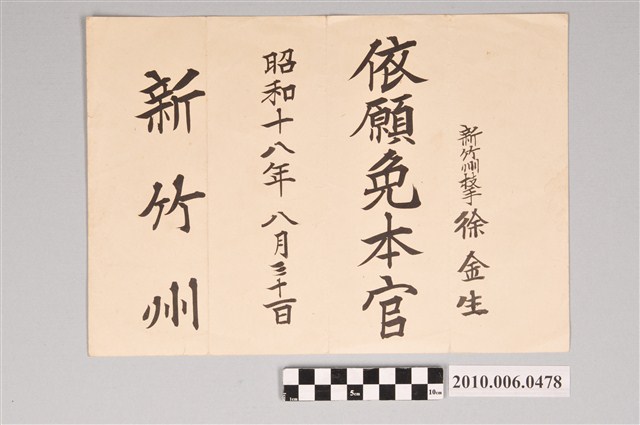 新竹州技手 徐金生
依願免本官
昭和十八年八月三十一日
新竹州
1cm 5cm 10cm
2010.006.0478